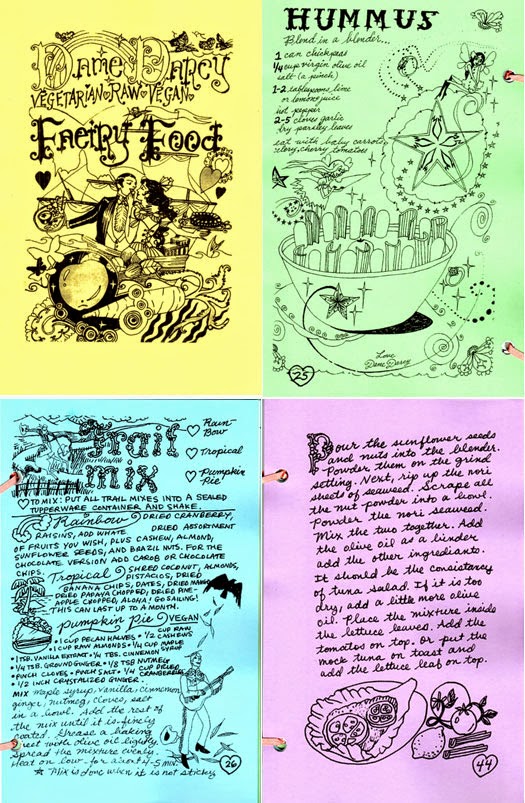 Dame Darcy
VEGETARIAN RAW VEGAN
Faeiry Food
HUMMUS
Blend in a blender...
1 can chickpeas
1/4 cup virgin olive oil
salt (a pinch)
1-2 tablespoons, lime
or lemon juice
hot pepper
2-5 cloves garlic
dry parsley leaves
eat with baby carrots,
celery, cherry tomatoes
Love
Dame Darcy
25
trail
mix
Rain-
Bow
Tropical
Pumpkin
Pie
TO MIX: PUT ALL TRAIL MIXES INTO A SEALED
TUPPERWARE CONTAINER AND SHAKE.
Rainbow DRIED CRANBERRY,
RAISINS, ADD WHATE DRIED ASSORTMENT
OF FRUITS YOU WISH, PLUS CASHEW, ALMOND,
SUNFLOWER SEEDS, AND BRAZIL NUTS. FOR THE
CHOCOLATE VERSION ADD CAROB OR CHOCOLATE
CHIPS.
Tropical SHRED COCONUT, ALMONDS,
PISTACIOS, DRIED
BANANA CHIPS, DATES, DRIED MANGO
DRIED PAPAYA CHOPPED, DRIED PINE-
APPLE CHOPPED, ALOHA! GO SAILING!
THIS CAN LAST UP TO A MONTH.
Pumpkin Pie VEGAN
• 1 CUP PECAN HALVES • 1/2 CUP RAW CASHEWS
• 1 CUP RAW ALMONDS • 1/4 CUP MAPLE
• 1 TB. VANILLA EXTRACT • 1/4 TBS. CINNEMON SYRUP
• 1/4 TB. GROUND GINGER • 1/8 TSB NUTMEG
• PINCH CLOVES • PINCH SALT • 1/4 CUP DRIED CRANBERRIES
• 1/2 INCH CRYSTALIZED GINGER
MIX maple syrup, vanilla, cinnemon
ginger, nutmeg, cloves, salt
in a bowl. Add the rest of
the mix until it is finely
coated. Grease a baking
sheet with olive oil lightly.
Spread the mixture evenly.
Heat on low for about 4-5 min.
Mix is done when it is not sticky
26
Pour the sunflower seeds
and nuts into the blender.
Powder them on the grind
setting. Next, rip up the nori
sheets of seaweed. Scrape all
the nut powder into a bowl.
Powder the nori seaweed.
Mix the two together. Add
the olive oil as a binder
add the other ingrediants.
It should be the consistancy
of tuna salad. If it is too
dry, add a little more olive
oil. Place the mixture inside
the lettuce leaves. Add the
tomatoes on top. Or put the
mock tuna on toast and
add the lettuce leaf on top.
44